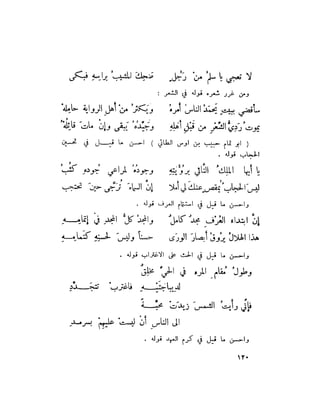 لا تعجبي يا سلمُ منْ رَجُلٍ ضَحِكَ المشيبُ برأسهِ فبكى
ومن غرر شعره قوله في الشعر :
سأقضي ببيتٍ يُحْمَدُ الناسُ أمرهُ ويَكثرُ منْ أهلِ الرواية حاملِهْ
يموتُ رَدِيُّ الشِّعْرِ من قبْلِ أهلهِ وجَيِّدُهُ يبقى وإنْ ماتَ قائلُهْ
( ابو تمام حبيب بن اوس الطائي ) احسن ما قيل في تحسين
الحجاب قوله .
يا أيها الملِكُ النَّائي برؤيتهِ وجودُهُ لمراعي جودهِ كثَبُ
ليسَ الحجابُ بمقصٍ عنكَ لي أملا إنَّ السماءَ تُرَجَّى حينَ تحتجب
واحسن ما قيل في استتمام العرف قوله .
إنَّ ابتداء العُرْفِ مجدٌ كاملٌ والمجدُ كلُّ المجدِ في إتمامِهِ
هذا الهلالُ يروقُ أبصارَ الورَى حسناً وليسَ لحسنِهِ كتمامِهِ
واحسن ما قيل في الحث على الاغتراب قوله .
وطولُ مُقامِ المرء في الحيِّ مخلِقٌ
لديباجتَيْهِ فاغتربْ تتجدَّدِ
فإنّي رأيتُ الشمسَ زيدَتْ محبَّةً
الى الناس أنْ ليستْ عليهمْ بسرمدِ
واحسن ما قيل في كرم العهد قوله .
١٢٠